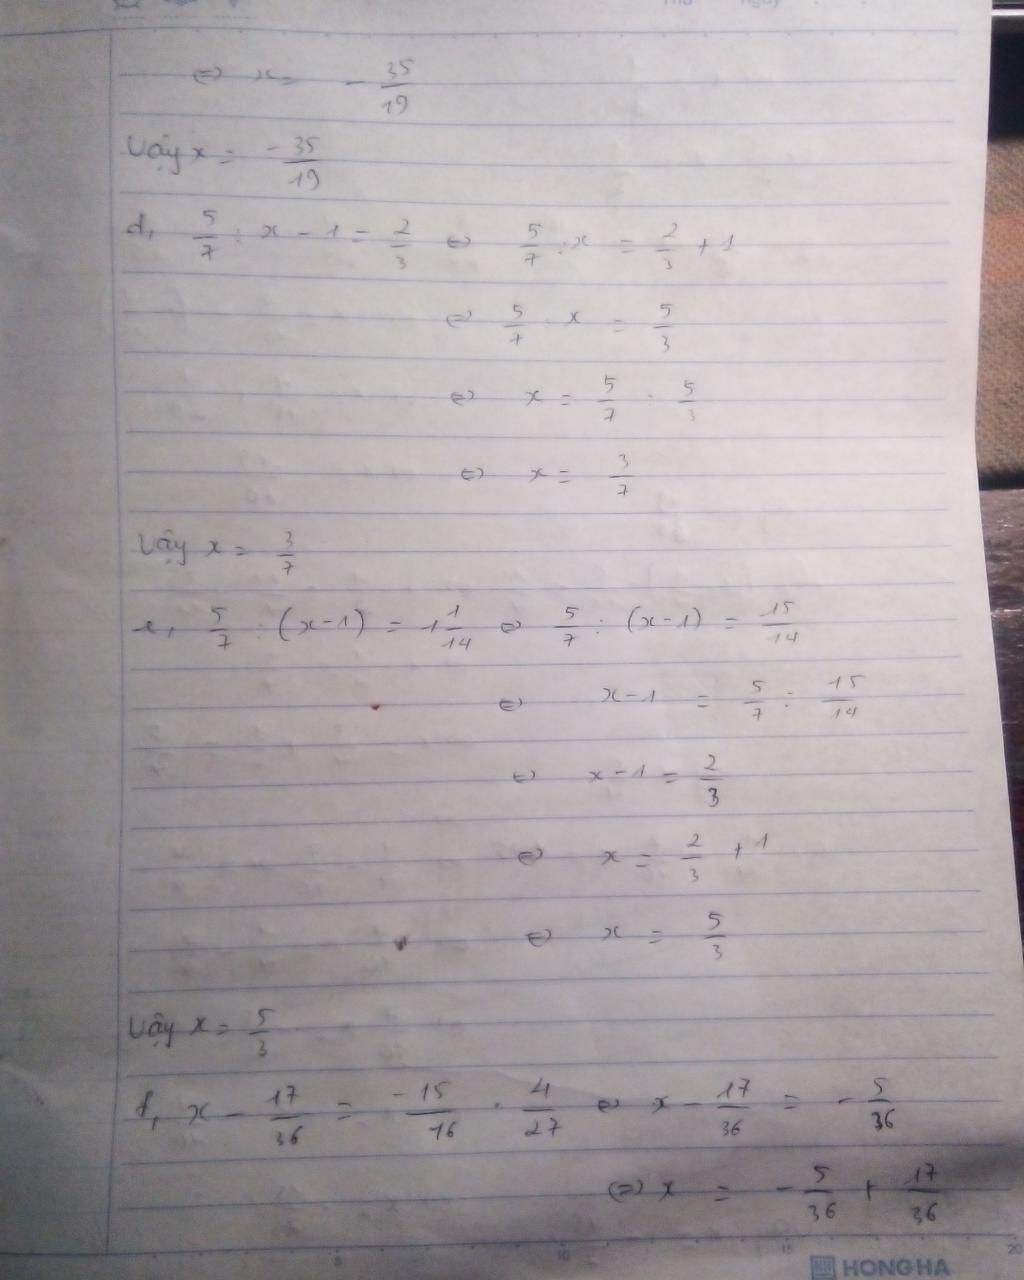 ⇔ x = - 35/19
Vậy x = - 35/19
d, 5/7 : x - 1 = 2/3 ⇔ 5/7 : x = 2/3 + 1
⇔ 5/7 : x = 5/3
⇔ x = 5/7 : 5/3
⇔ x = 3/7
Vậy x = 3/7
e, 5/7 : (x-1) = 1 1/14 ⇔ 5/7 : (x-1) = 15/14
⇔ x-1 = 5/7 : 15/14
⇔ x-1 = 2/3
⇔ x = 2/3 + 1
⇔ x = 5/3
Vậy x = 5/3
f, x - 17/36 = -15/16 . 4/27 ⇔ x - 17/36 = - 5/36
⇔ x = - 5/36 + 17/36
5 10 15 20
HONG HA